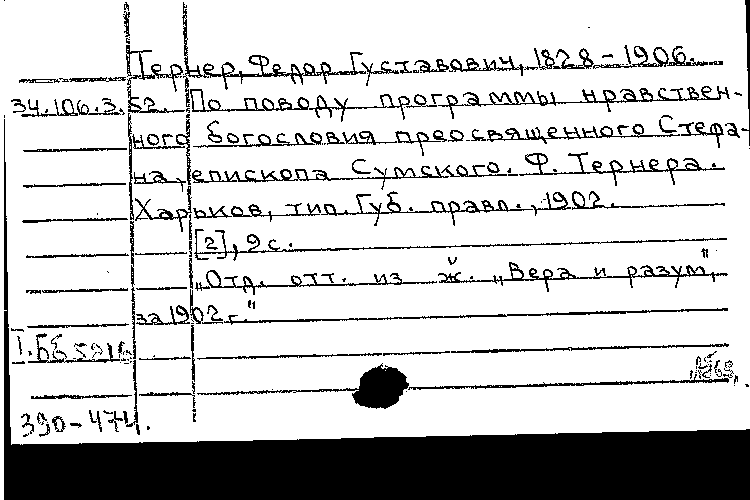 Тернер, Федор Густавович, 1828-1906.
34.106.3.52. По поводу программы нравствен-
ного богословия преосвященного Стефа-
на, епископа Сумского. Ф. Тернера.
Харьков, тип. Губ. правл., 1902.
[2], 9 с.
„Отд. отт. из ж. „Вера и разум",
за 1902 г."
390-474.